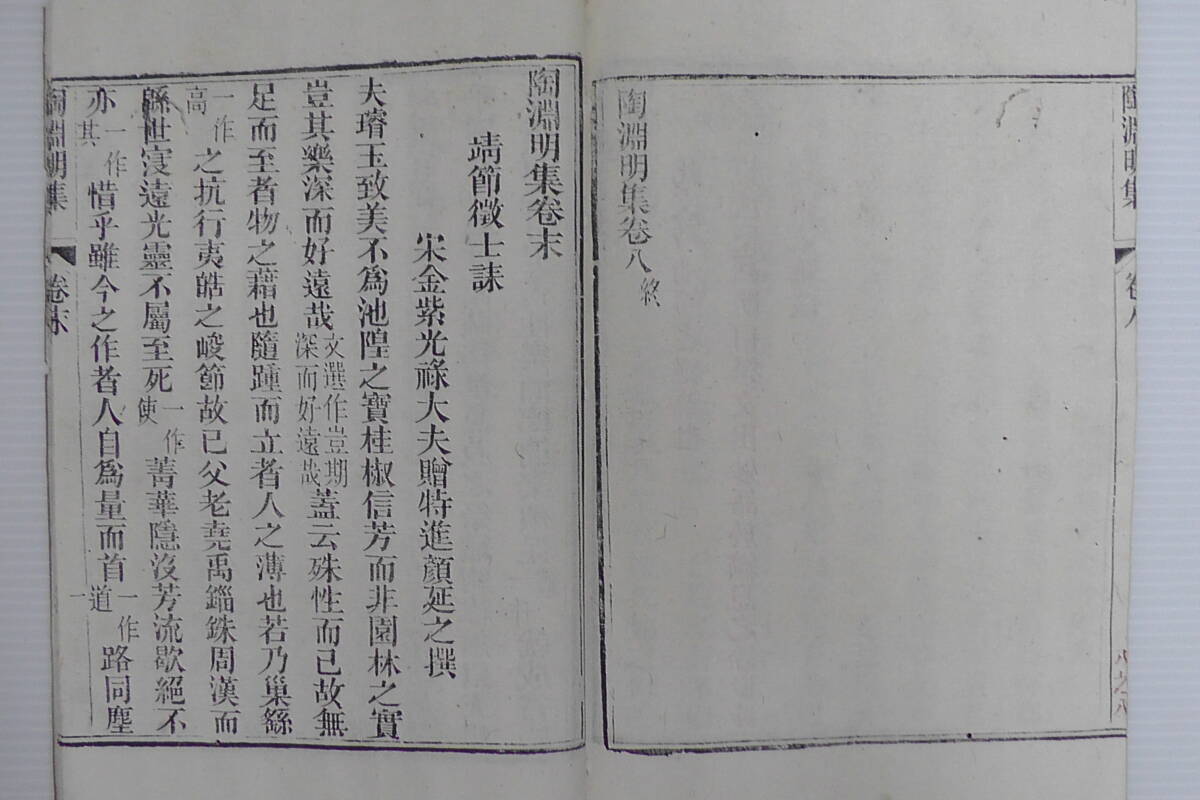 陶淵明集 卷八
陶淵明集卷八終
陶淵明集卷末
靖節徵士誄
宋金紫光祿大夫贈特進顏延之撰
夫璿玉致美不為池隍之寶桂椒信芳而非園林之實
豈其樂深而好遠哉文選作豈期深而好遠哉蓋云殊性而已故無
足而至者物之藉也隨踵而立者人之薄也若乃巢繇
一作高之抗行夷皓之峻節故已父老堯禹錙銖周漢而
緜世寖遠光靈不屬至死一作使菁華隱沒芳流歇絕不
亦一作其惜乎雖今之作者人自為量而首一作道路同塵
陶淵明集 卷末 一